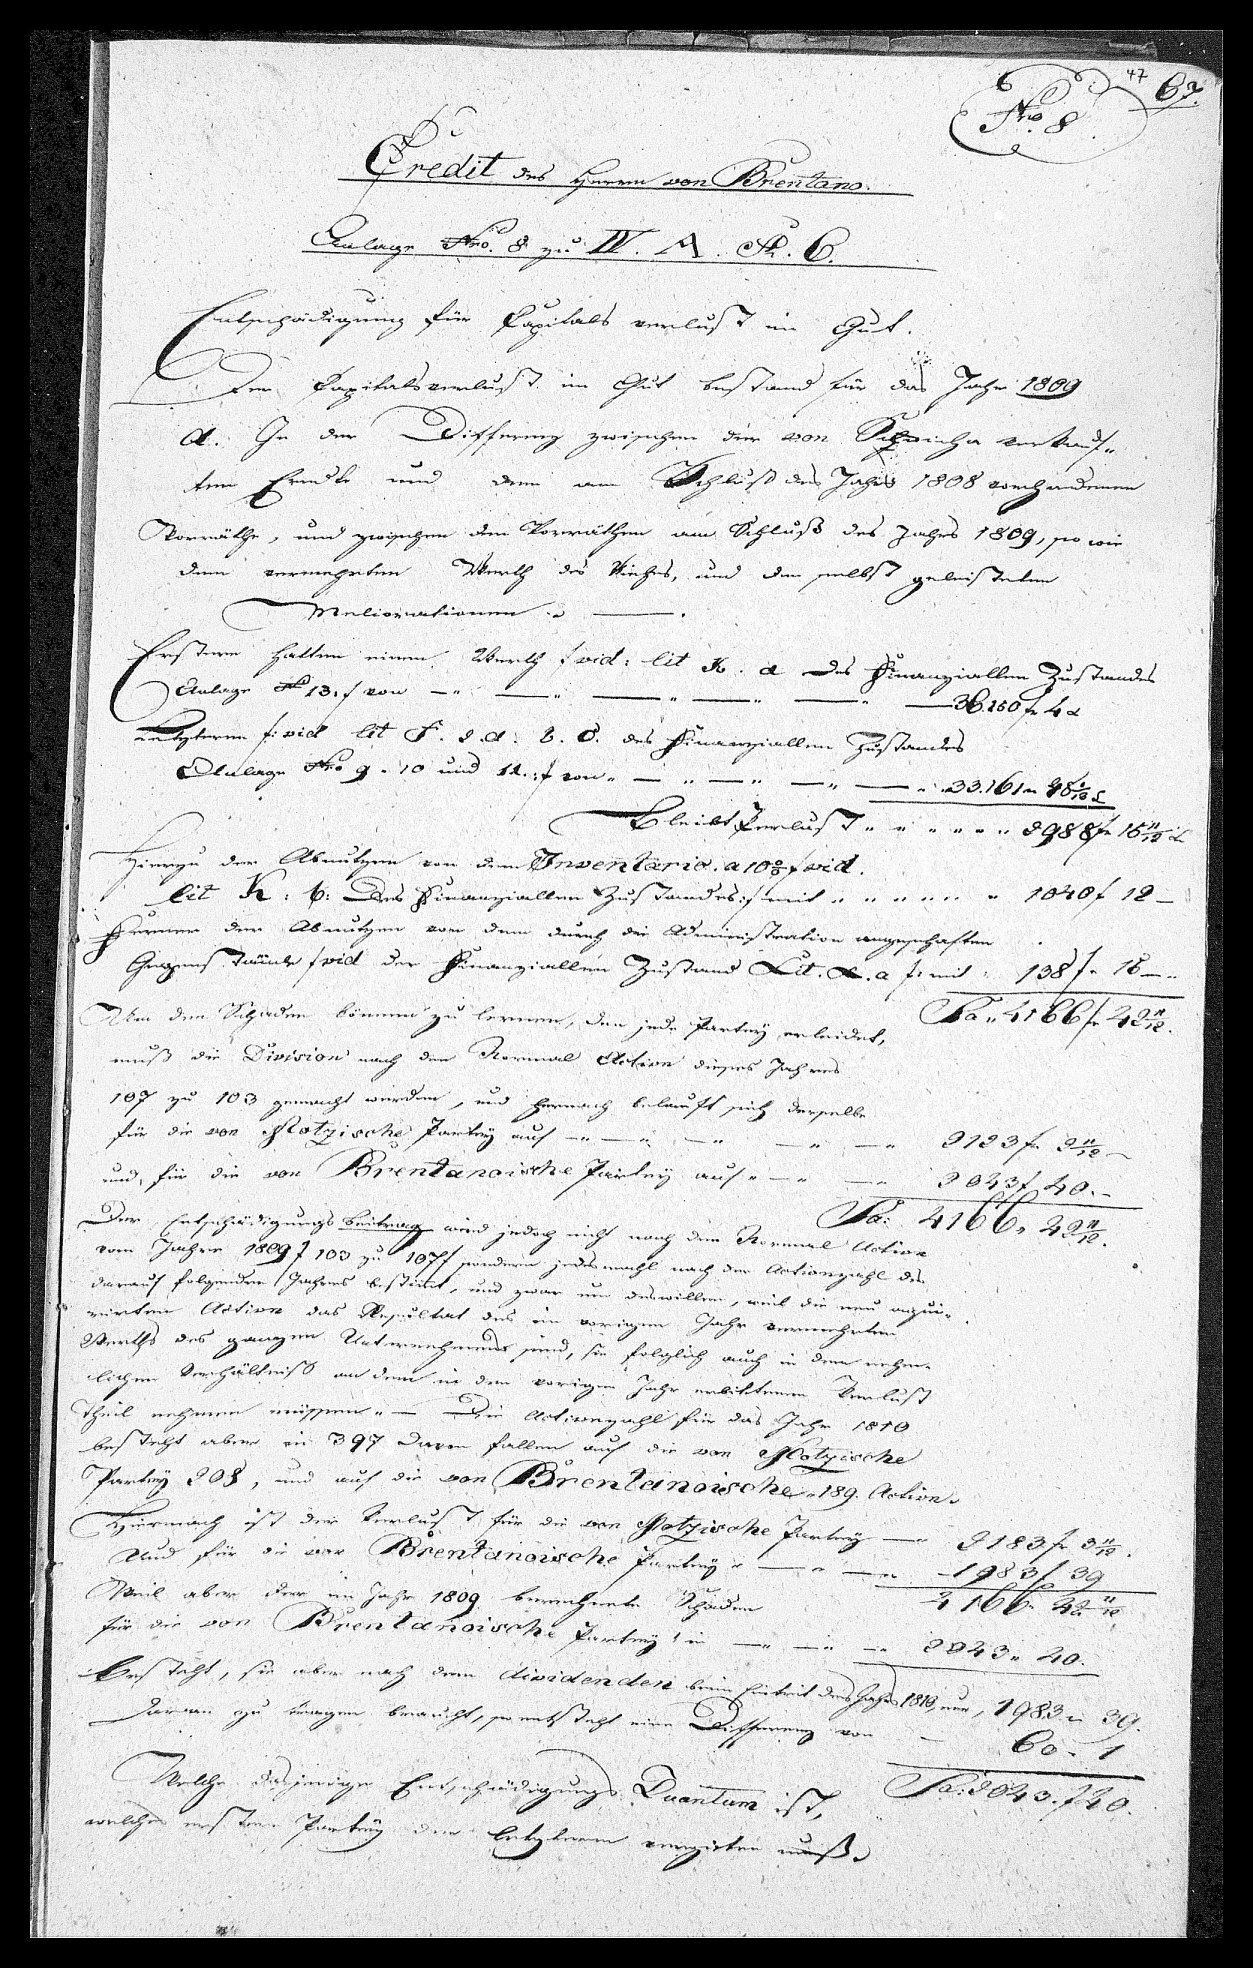 47 67.
Nro. 8
Credit des Herrn von Brentano.
Anlage Nro. 8 zu IV. A. No. 6.
Entschädigung für Capitals verlust im Gut.
Der Capitalsverlust im Gut bestand für das Jahr 1809
a. In der Differenz zwischen der von verkauf-
ten Erndte und dem am Schluß des Jahrs 1808 vorhandenen
Vorräthe, und zwischen den Vorräthen am Schluß des Jahres 1809, so wie
dem vermehrten Werth des Viehes, und den selbst geleisteten
Meliorationen.
Erstere hatten einen Werth /vid: lit K. a des Finanziellen Zustandes
Anlage No 13./ von — — — — 36.150 f 4
Letzteren /:vid lit F. 2. a: b. c. des Finanziellen Zustandes
Anlage Nro 9. 10 und 11.:/ von — — — — 33.161 48
Bleibt Verlust 2988 f 15 11/12
Hierzu der Abnutzen von dem Inventario. a 10% /vid.
lit K: b: Des Finanziellen Zustandes:/ mit 1040 f 12 —
Ferner der Abnutzen von dem durch die Administration angeschaften
Gegenstände /vid der Finanziellen Zustand Lit. a /: mit 138 f 15 —
Sa. 4166 f 42 11/12.
Um den Schaden können zu lernen, den jede Partey erleidet,
muß die Division nach den Normal Action dieses Jahres
107 zu 103 gemacht werden, und hernach belauft sich derselbe
für die von Motzische Partey auf — — — — 2123 f 2 11/12
und, für die von Brentanoische Partey auf — — 2043 f 40. —
Sa: 4166 42 11/12.
Der Entschädigungs beitrag wird jedoch nicht nach den Normal Action
vom Jahre 1809 / 103 zu 107 / sondern jedesmahl nach der Actionzahl des
darauf folgenden Jahres bestimt, und zwar um deswillen, weil die neu aqui-
rirten Action das Resultat des im vorigen Jahr vermehrten
Werths des ganzen Unternehmens sind, sie folglich auch in dem nehm-
lichen Verhältniß an dem in dem vorigen Jahr erlittenen Verlust
Theil nehmen müssen. — Die Actionzahl für das Jahr 1810
besteht aber in 397 davon fallen auf die von Motzische
Partey 208, und auf die von Brentanoische 189. Action.
Hiernach ist der Verlust für die von Motzische Partey — 2183 f 3 11/12.
Und für die von Brentanoische Partey — — 1983 f 39
4166 42 11/12
Weil aber der im Jahr 1809 berechnete Schaden
für die von Brentanoische Partey in — — — 2043 40.
besteht, sie aber nach dem dividenden beim Eintrit des Jahrs 1810, nur, 1983 39.
daran zu tragen braucht, so entsteht eine Differenz von — 60. 1
Sa: 2043. f 40.
Welche dasjenige Entschädigungs Quantum ist,
welches erstere Partey der letzteren vergüten muß.